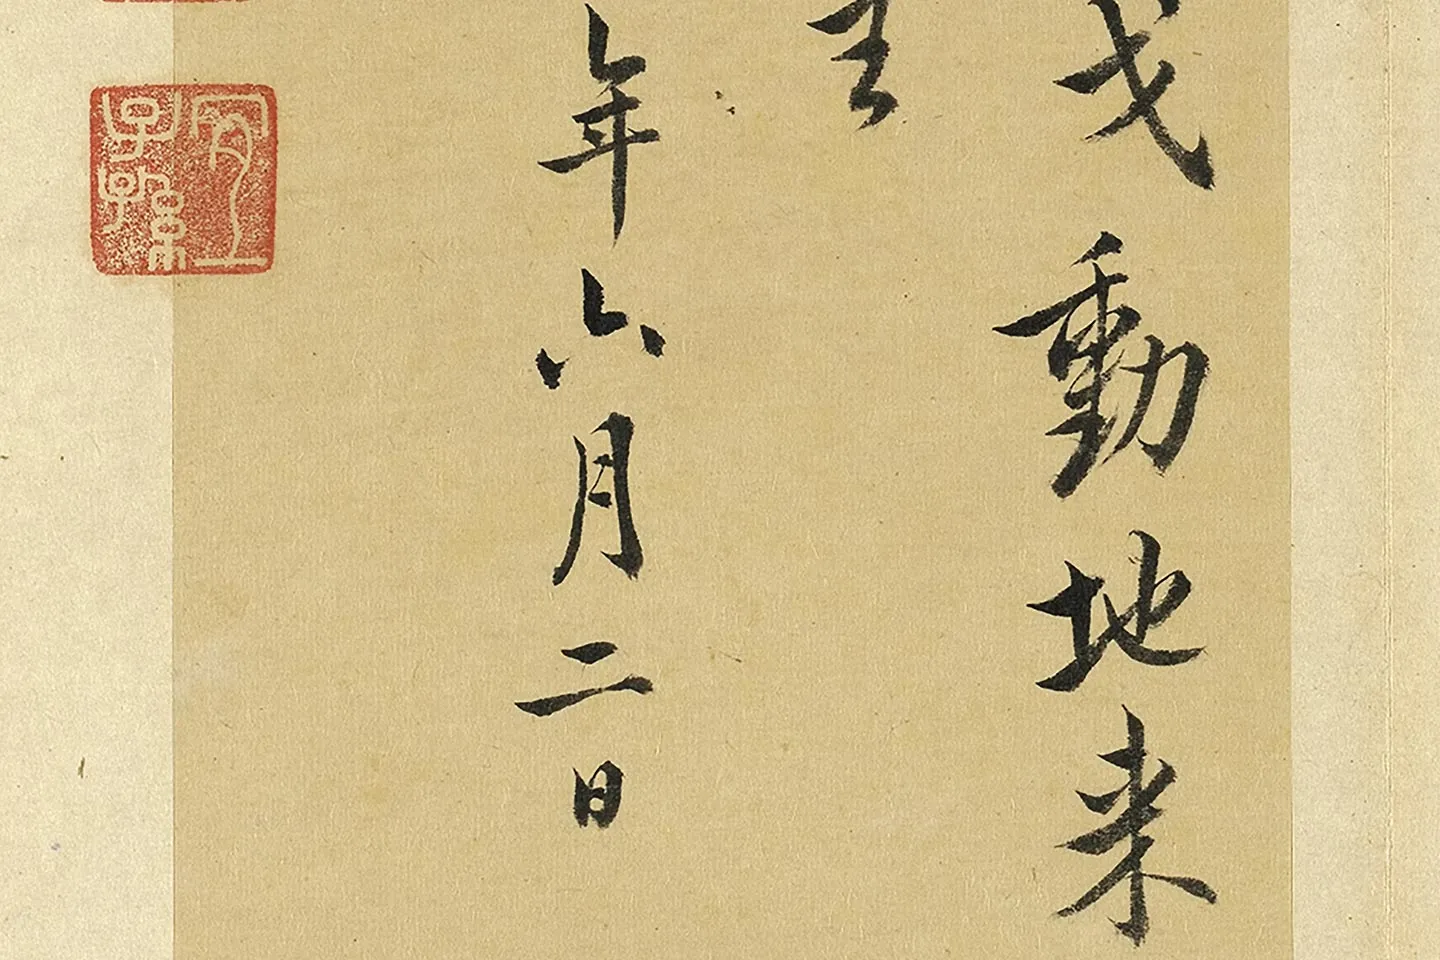 戈動地来
年六月二日